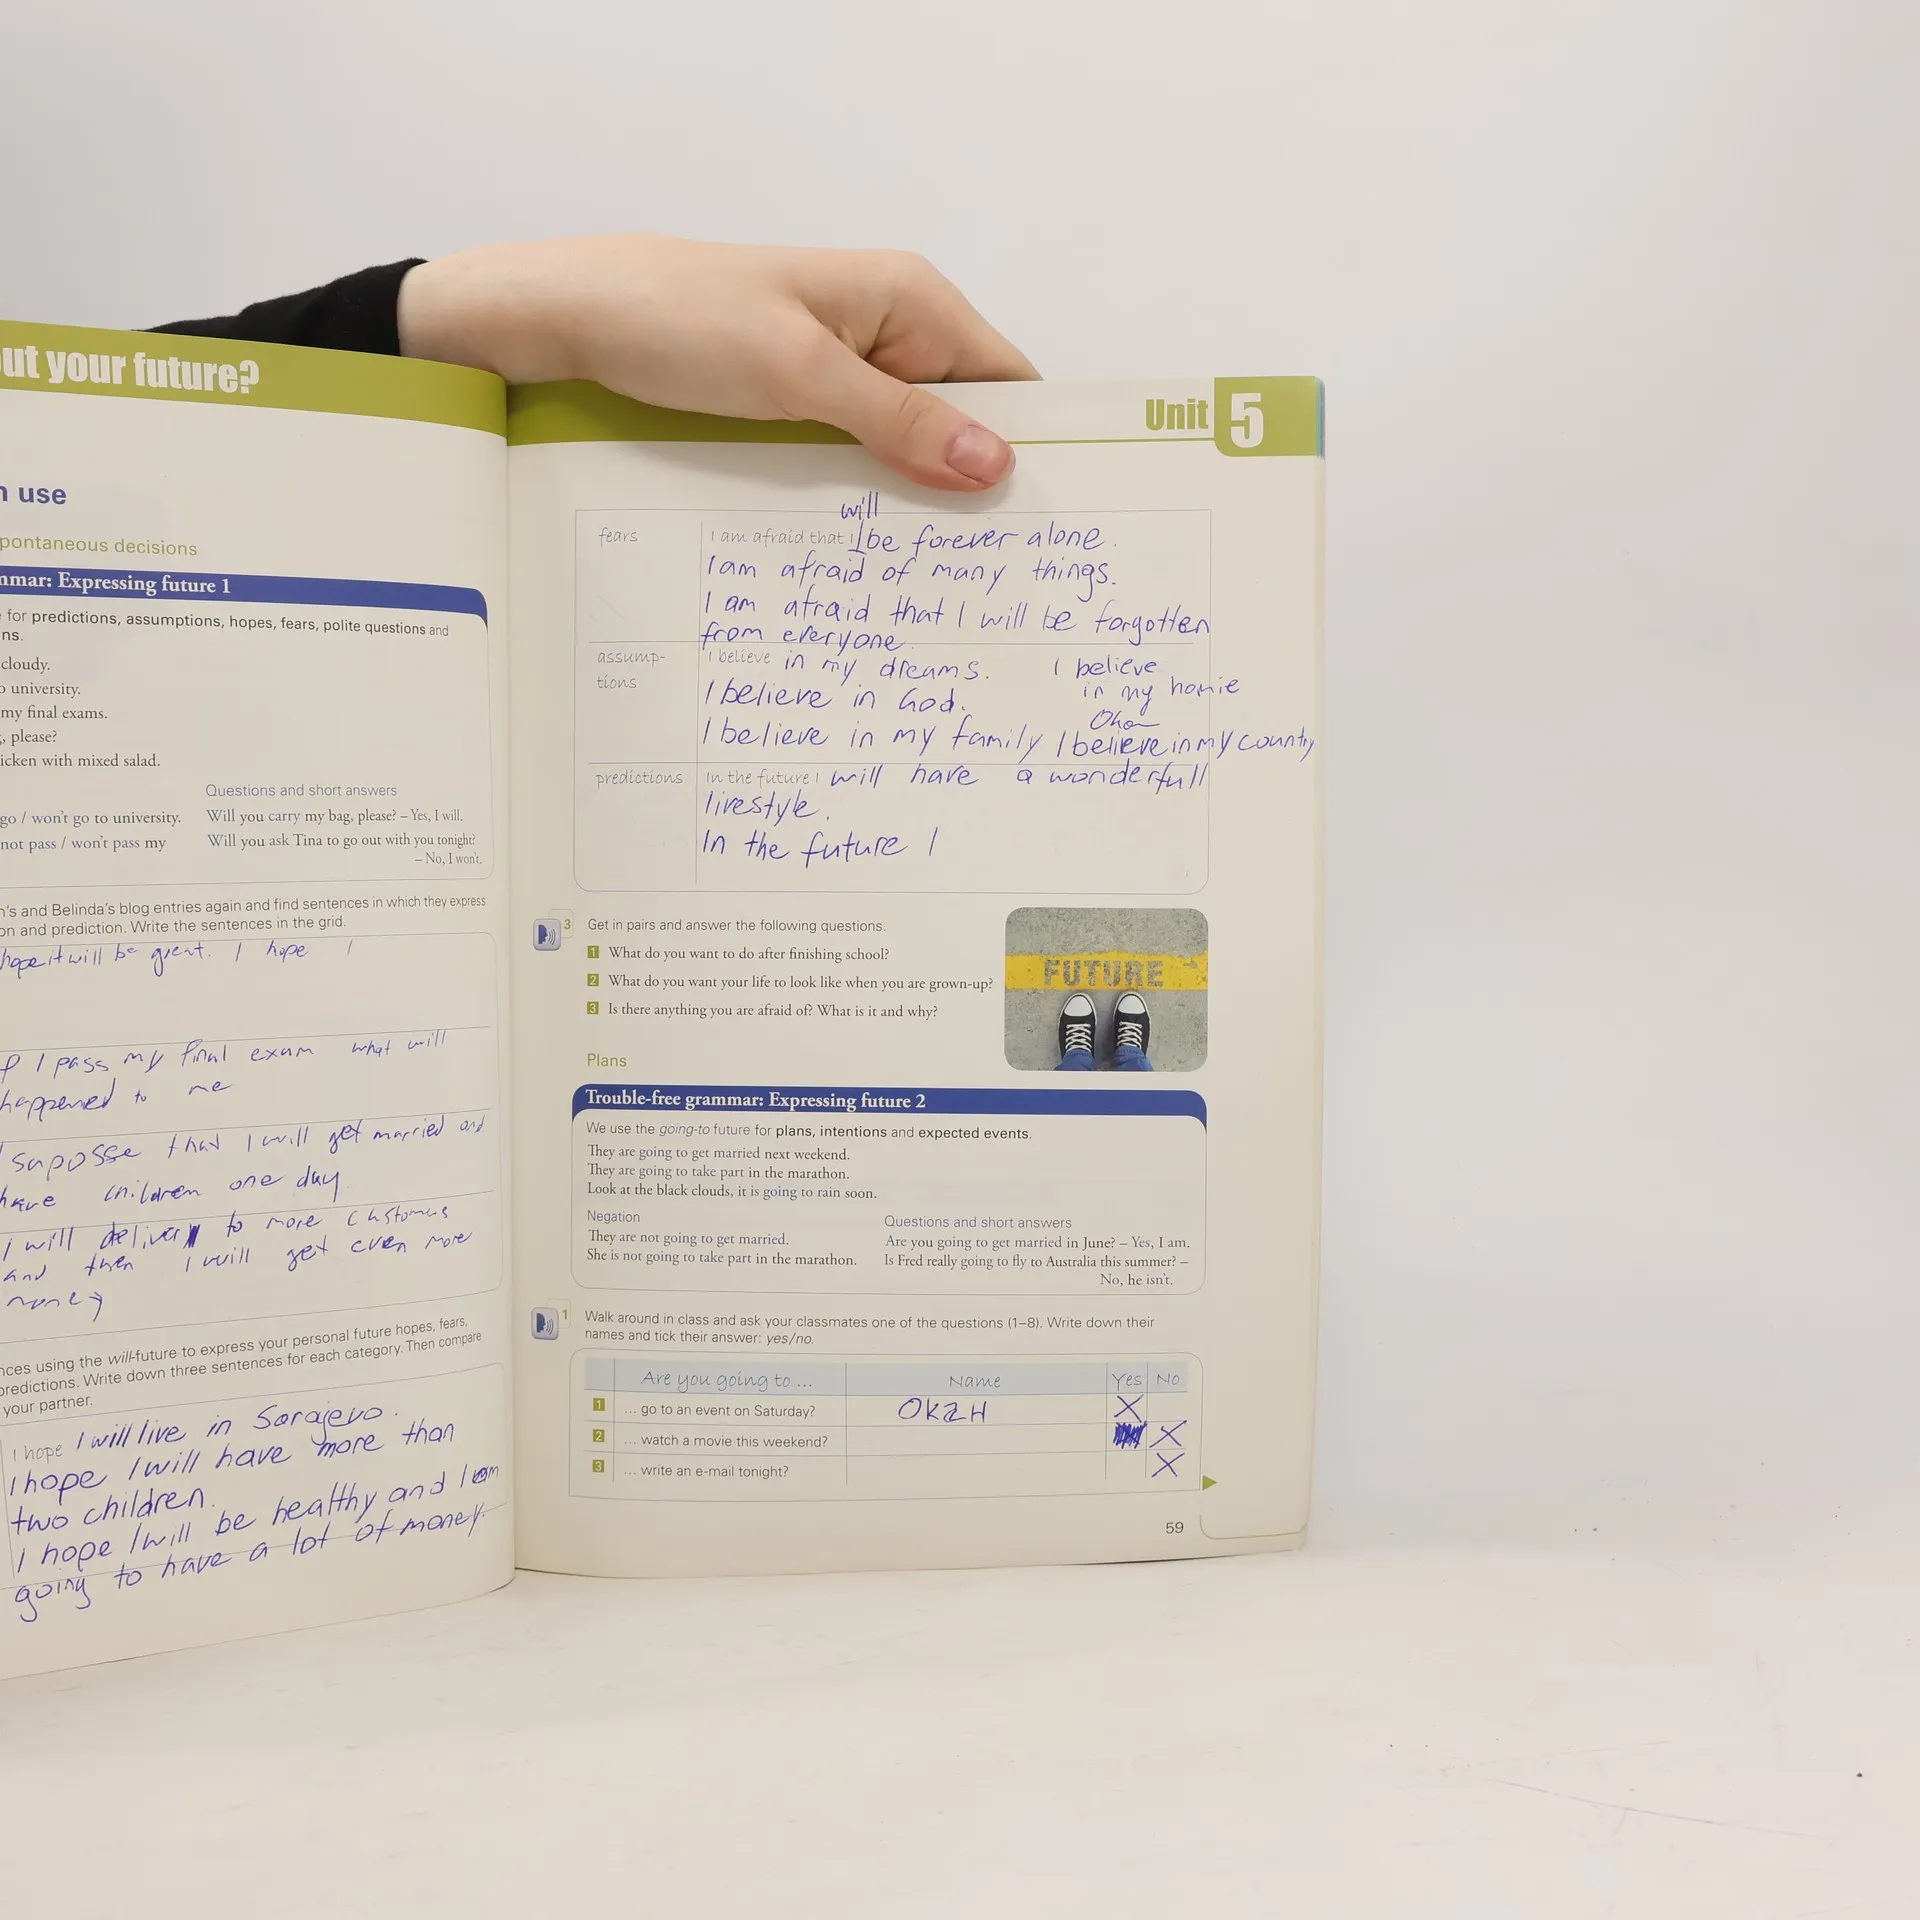 out your future?
n use
pontaneous decisions
mmar: Expressing future 1
for predictions, assumptions, hopes, fears, polite questions and
ns.
cloudy.
o university.
my final exams.
, please?
icken with mixed salad.
Questions and short answers
go / won't go to university.
Will you carry my bag, please? – Yes, I will.
not pass / won't pass my
Will you ask Tina to go out with you tonight?
– No, I won't.
n's and Belinda's blog entries again and find sentences in which they express
on and prediction. Write the sentences in the grid.
hope it will be great. I hope I
I pass my final exam what will
happened to me
suposse that I will get married and
have children one day
I will delivery to more customers
and then I will get even more
money
nces using the will-future to express your personal future hopes, fears,
predictions. Write down three sentences for each category. Then compare
your partner.
I hope I will live in Sarajevo.
I hope I will have more than
two children.
I hope I will be healthy and I am
going to have a lot of money.
Unit 5
will
fears
I am afraid that I be forever alone.
I am afraid of many things.
I am afraid that I will be forgotten
from everyone.
assump-
tions
I believe in my dreams.
I believe in God.
I believe in my family
I believe
in my homie
I believe in my country
predictions
In the future I will have a wonderfull
livestyle.
In the future I
3 Get in pairs and answer the following questions.
1 What do you want to do after finishing school?
2 What do you want your life to look like when you are grown-up?
3 Is there anything you are afraid of? What is it and why?
FUTURE
Plans
Trouble-free grammar: Expressing future 2
We use the going-to future for plans, intentions and expected events.
They are going to get married next weekend.
They are going to take part in the marathon.
Look at the black clouds, it is going to rain soon.
Negation
They are not going to get married.
She is not going to take part in the marathon.
Questions and short answers
Are you going to get married in June? – Yes, I am.
Is Fred really going to fly to Australia this summer? –
No, he isn't.
1 Walk around in class and ask your classmates one of the questions (1–8). Write down their
names and tick their answer: yes/no.
Are you going to ... Name Yes No
1 ... go to an event on Saturday? X
2 ... watch a movie this weekend? X
3 ... write an e-mail tonight? X
59